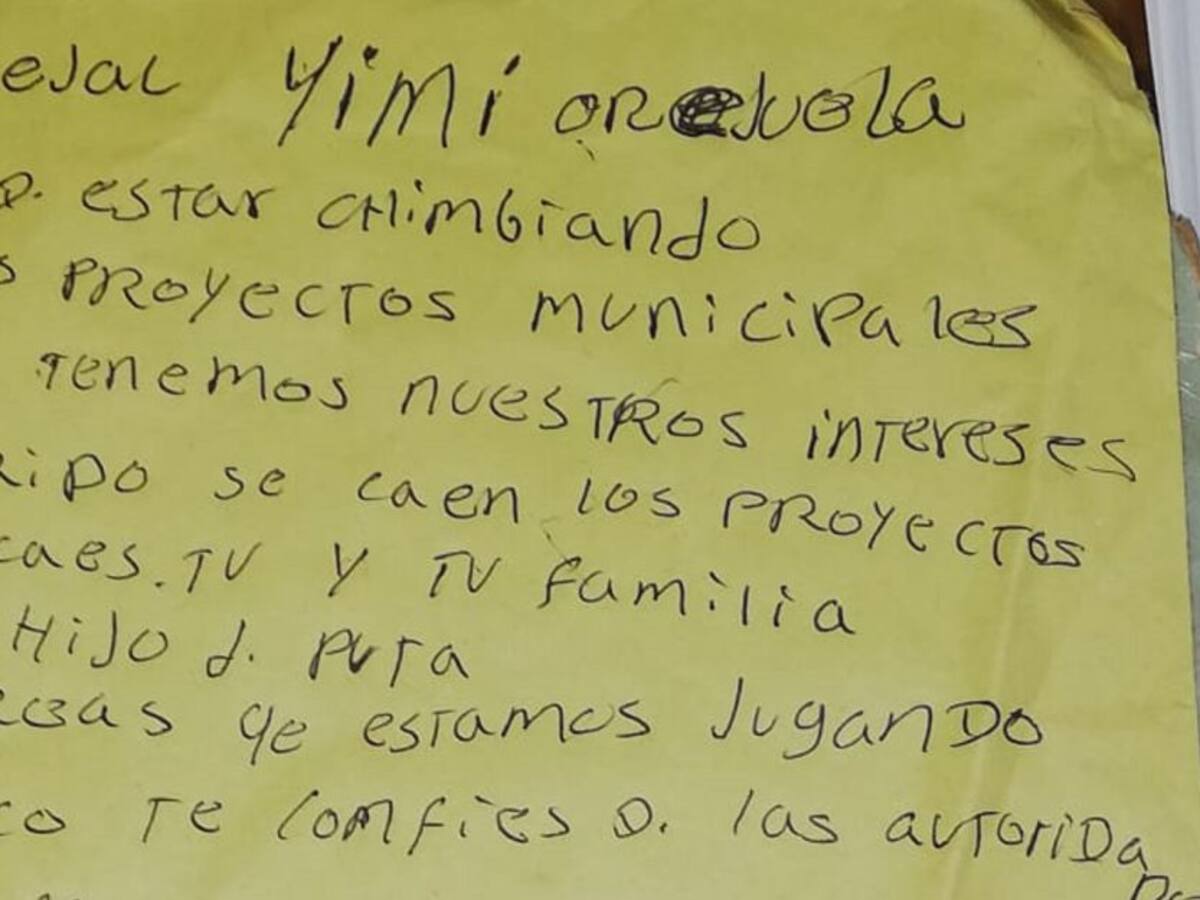 eJal Yimi orejuela
D. estar chimbiando
s proyectos municipales
tenemos nuestros intereses
ripo se caen los proyectos
caes. tu y tu familia
Hijo d. puta
eas qe estamos Jugando
co te comfies D. las autorida